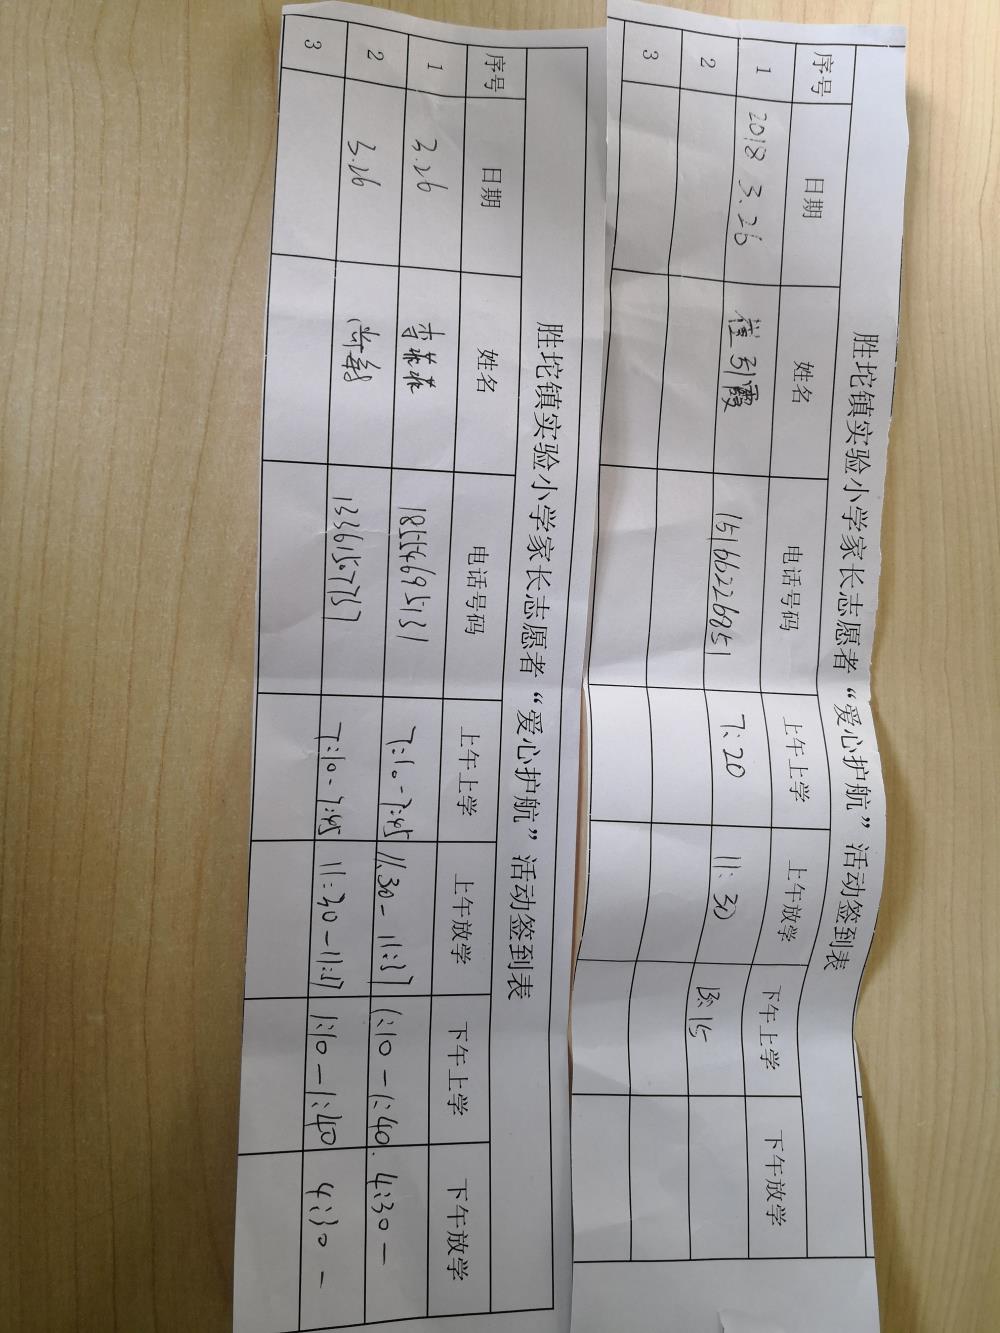 胜坨镇实验小学家长志愿者“爱心护航”活动签到表
序号 日期 姓名 电话号码 上午上学 上午放学 下午上学 下午放学
1 2018 3.26 崔引霞 15166226851 7:20 11:30 13:15
2
3
胜坨镇实验小学家长志愿者“爱心护航”活动签到表
序号 日期 姓名 电话号码 上午上学 上午放学 下午上学 下午放学
1 3.26 李花花 18554695131 7:10-7:45 11:30-11:57 1:10-1:40. 4:30-
2 3.26 7:10-7:45 11:30-11:57 1:10-1:40 4:30-
3